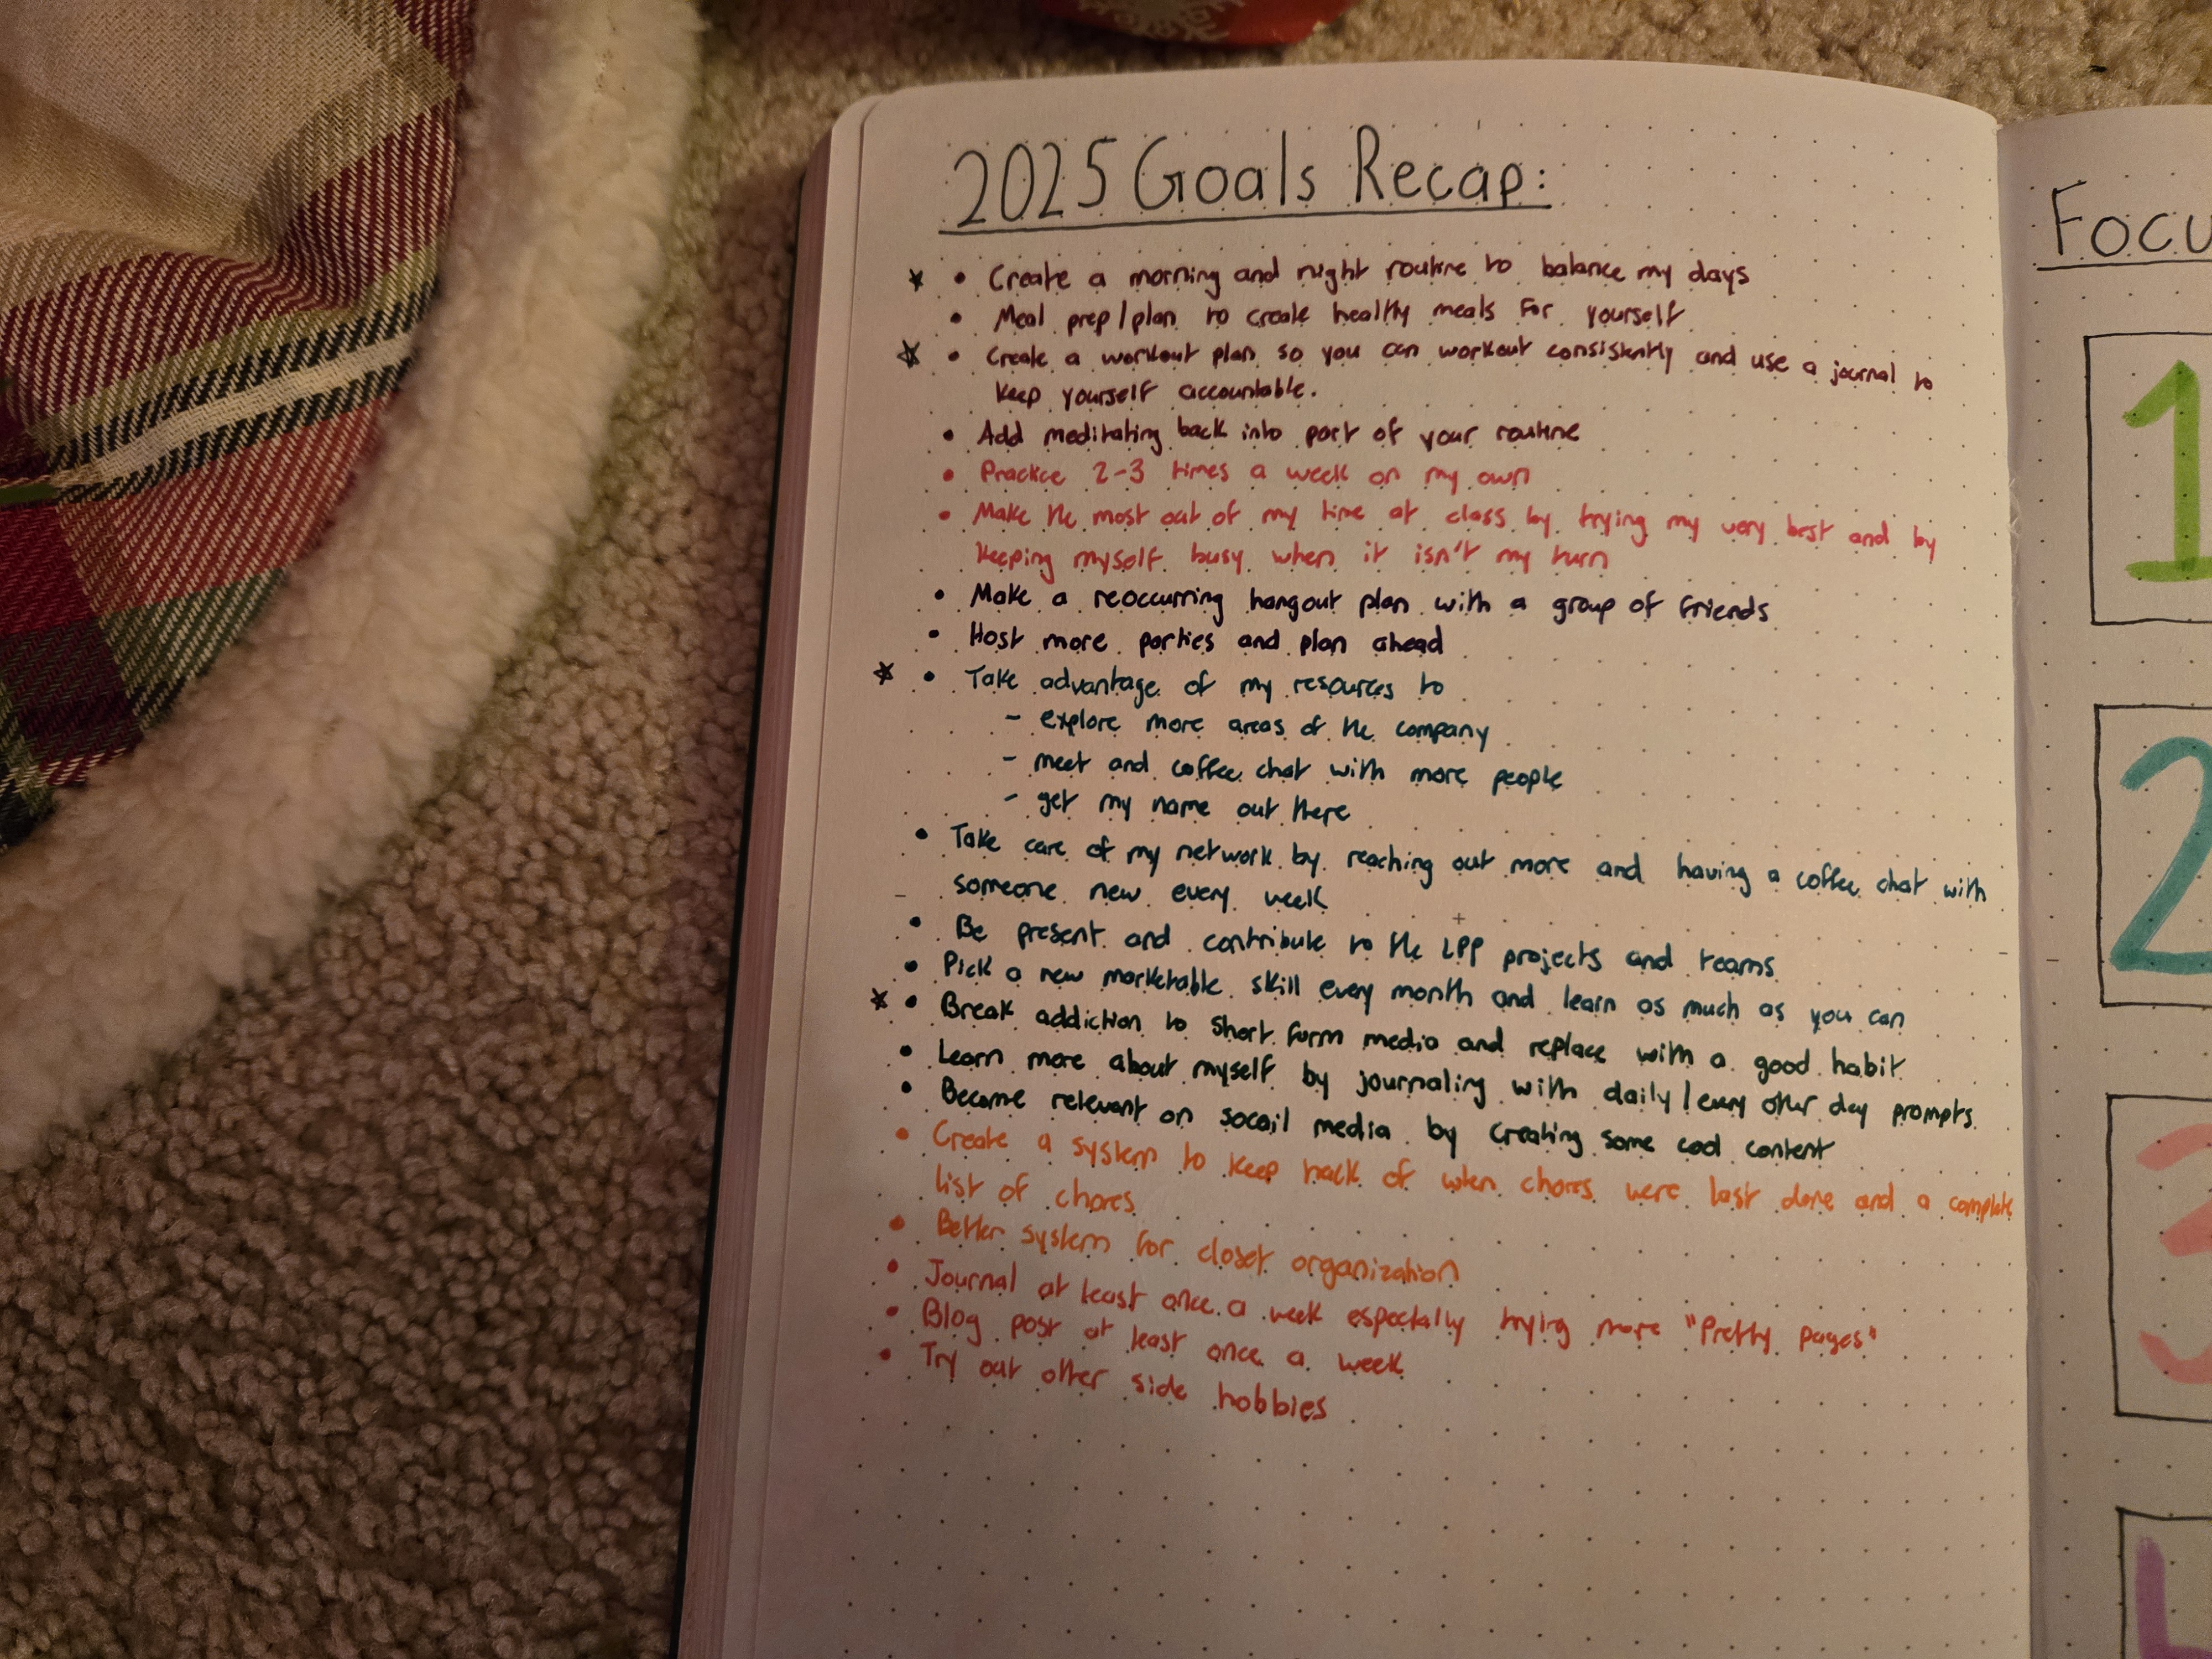 2025 Goals Recap:
★ • Create a morning and night routine to balance my days
• Meal prep/plan to create healthy meals for yourself
★ • Create a workout plan so you can workout consistently and use a journal to
keep yourself accountable.
• Add meditating back into part of your routine
• Practice 2-3 times a week on my own
• Make the most out of my time at class by trying my very best and by
keeping myself busy when it isn't my turn
• Make a reoccurring hangout plan with a group of friends
• Host more parties and plan ahead
★ • Take advantage of my resources to
- explore more areas of the company
- meet and coffee chat with more people
- get my name out there
• Take care of my network by reaching out more and having a coffee chat with
someone new every week
• Be present and contribute to the LPP projects and teams
• Pick a new marketable skill every month and learn as much as you can
★ • Break addiction to short form media and replace with a good habit
• Learn more about myself by journaling with daily/every other day prompts
• Become relevant on socail media by creating some cool content
• Create a system to keep track of when chores were last done and a complete
list of chores
• Better system for closet organization
• Journal at least once a week especially trying more "Pretty pages"
• Blog post at least once a week
• Try out other side hobbies
Focu
1
2
3